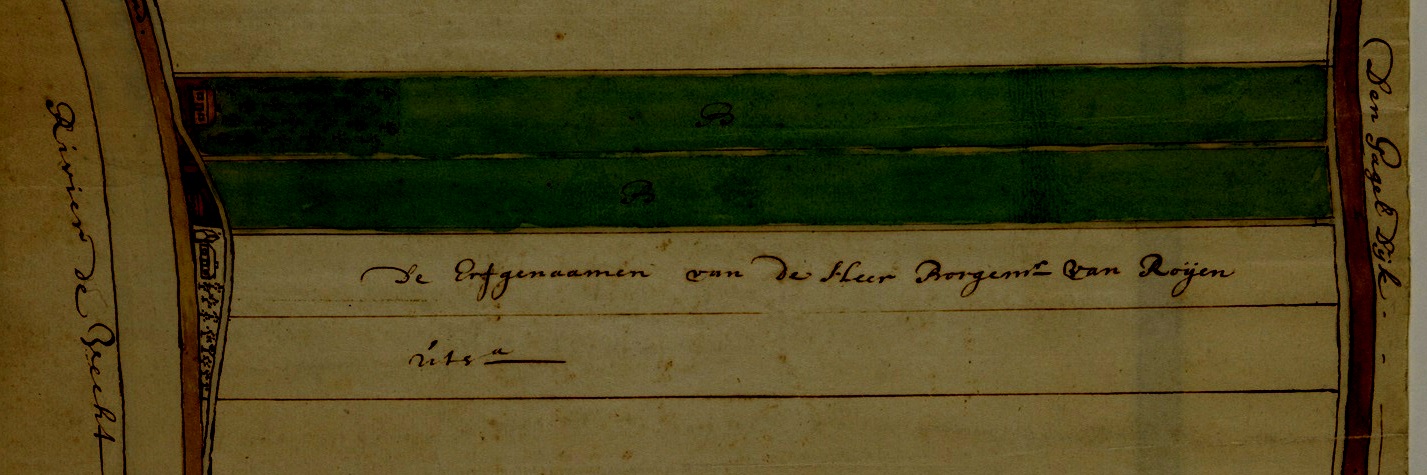 Rivier de Vecht
B
B
De Erfgenaamen van de Heer Borgemr van Roÿen
úts a
Den Gagel Dÿk